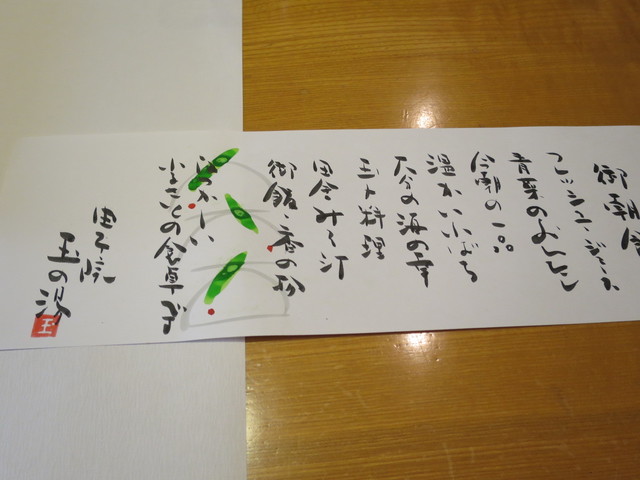 御朝食
フレッシュ・ジュース
青菜のおしたし
今朝の一品
温かい小ばち
大分の海の幸
玉子料理
田舎みそ汁
御飯・香の物
なつかしい
ふるさとの食卓です
由布院
玉の湯
玉